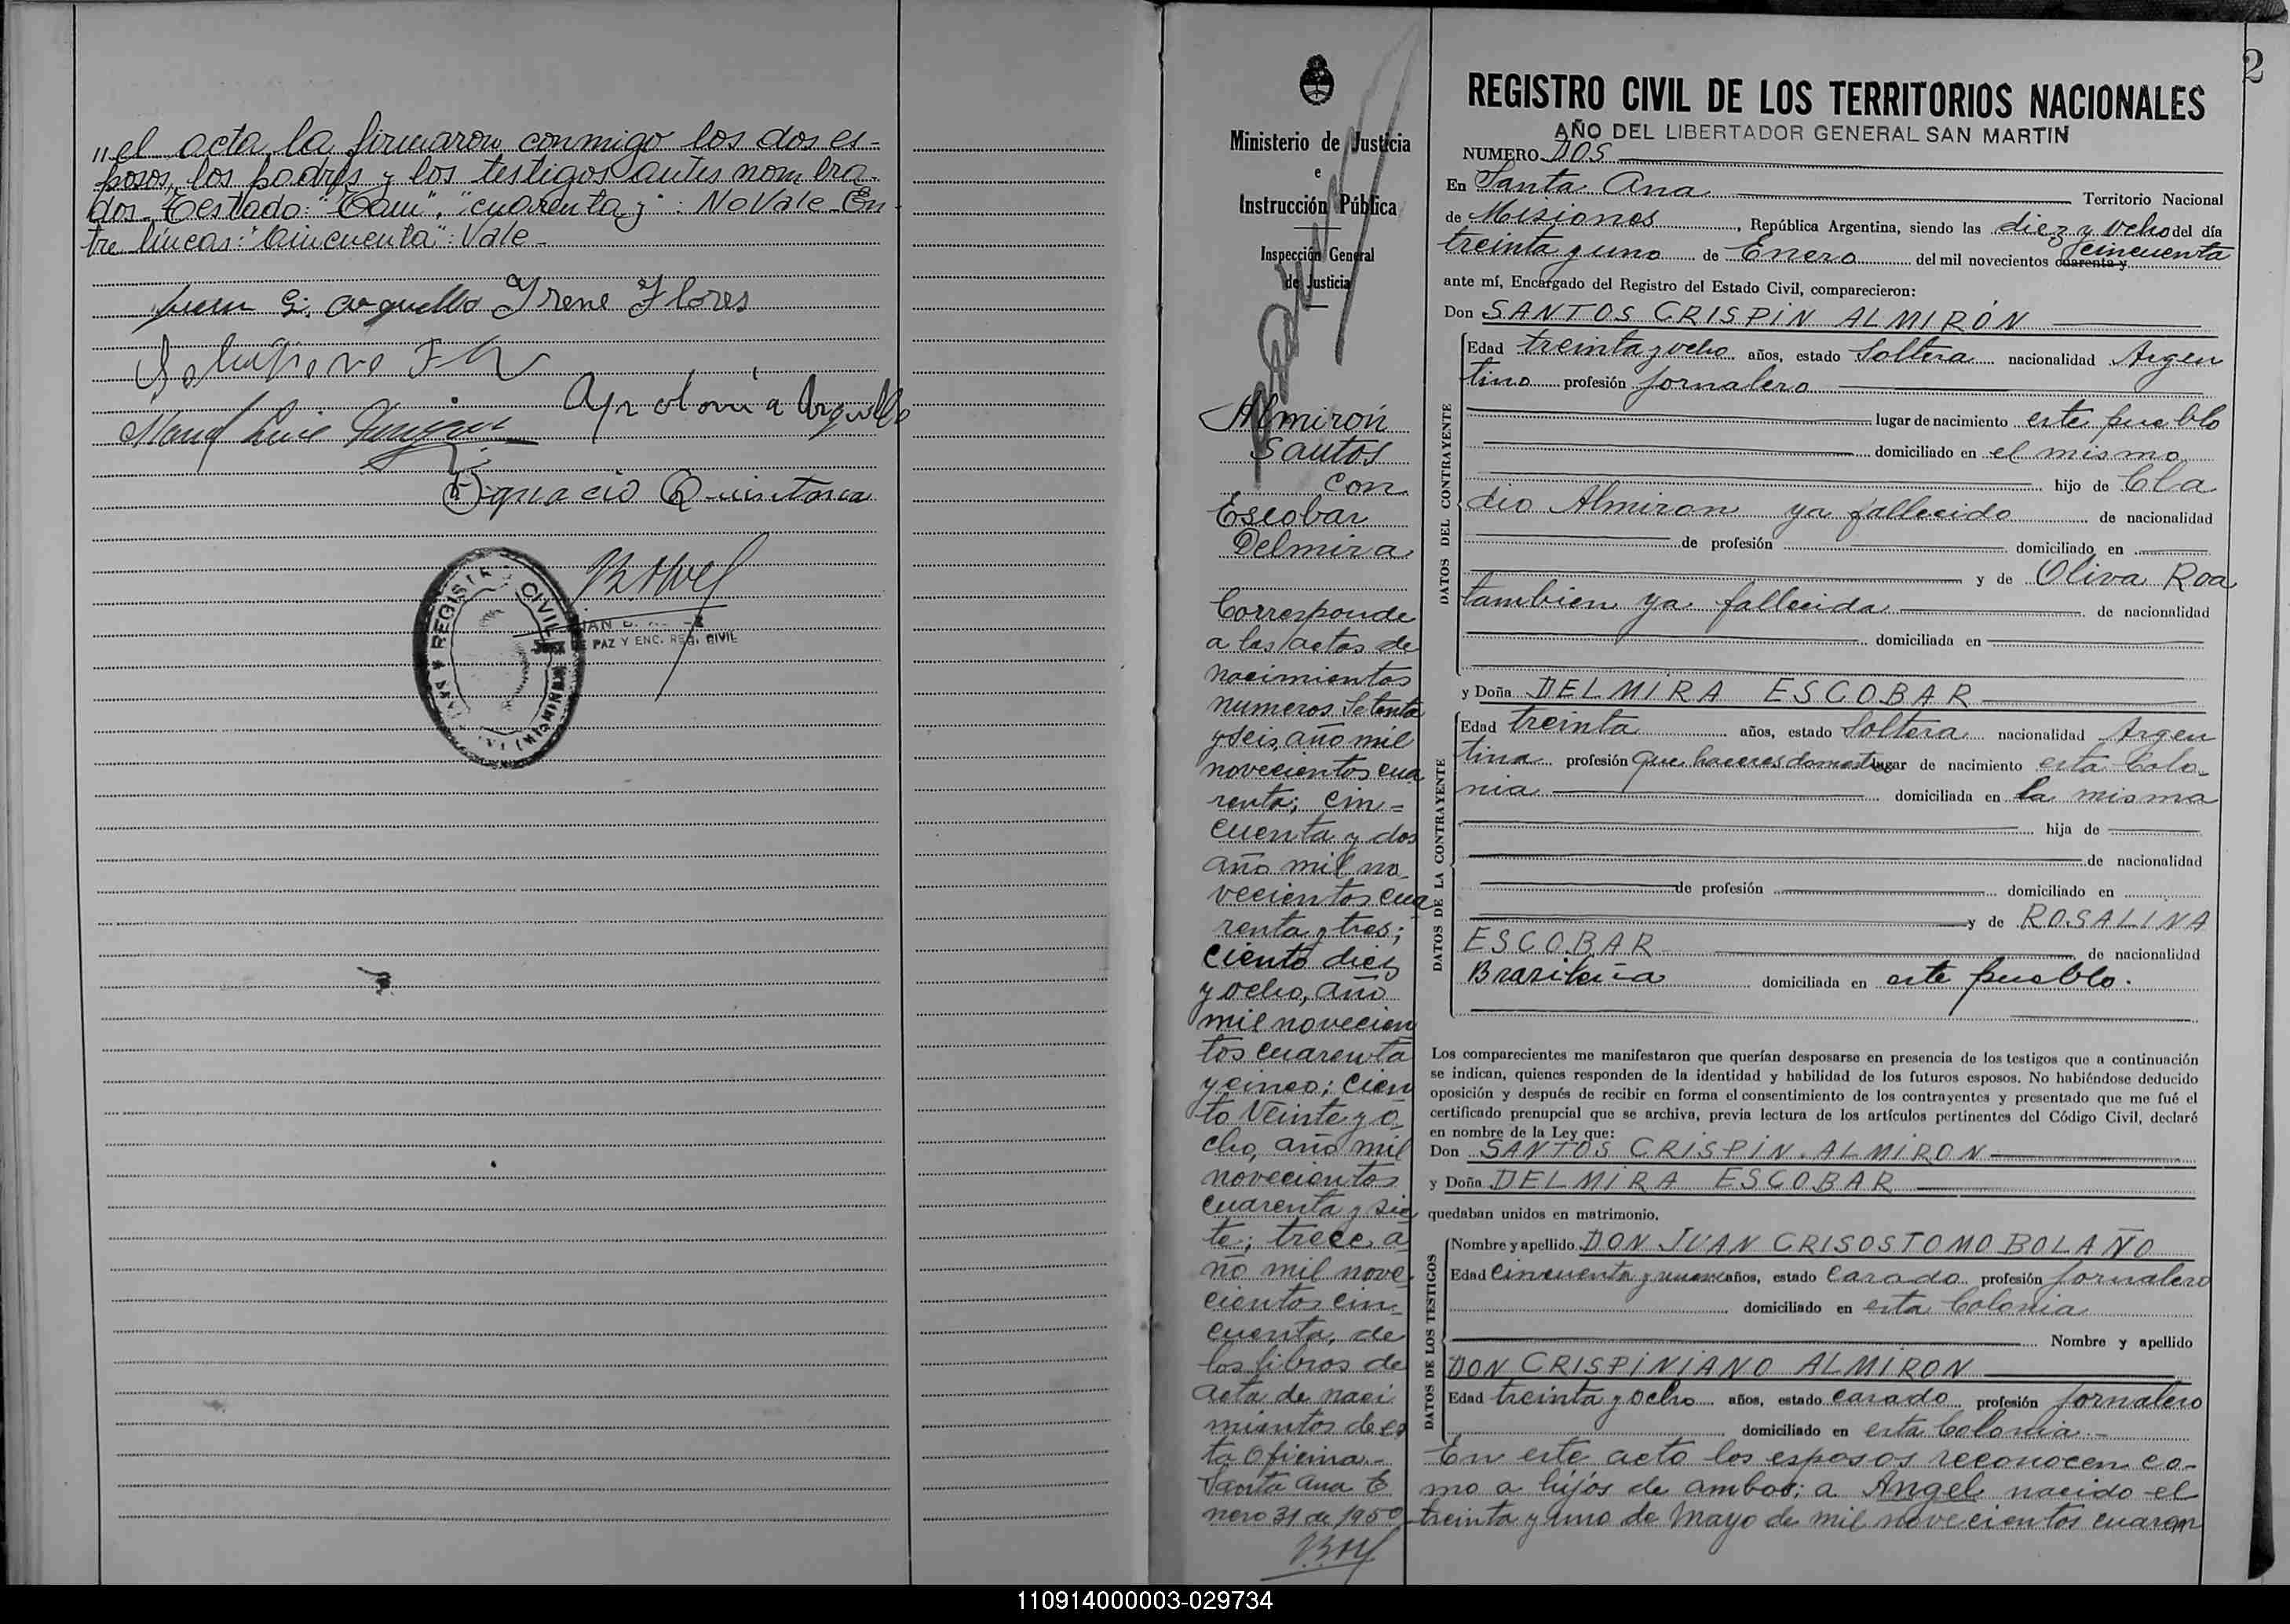 „el acta, la firmaron conmigo los dos es-
posos, los padres y los testigos antes nombra-
dos. Testado: "cuarenta y": No Vale. En-
tre líneas: "Cincuenta": Vale-
G. Arguello Irene Flores
Apolonia Arguello
Manuel Luis
Ignacio Quintana
REGISTRO CIVIL
PAZ Y ENC. REG. CIVIL
2
Ministerio de Justicia
e
Instrucción Pública
Inspección General
de Justicia
Almirón
Santos
con
Escobar
Delmira
Corresponde
a las actas de
nacimientos
numeros Setenta
y seis, año mil
novecientos cua
renta; cin=
cuenta y dos
año mil no-
vecientos cua
renta y tres;
ciento diez
y ocho, año
mil novecien
tos cuarenta
y cinco; cien
to veinte y o-
cho, año mil
novecientos
cuarenta y sie
te; trece a-
ño mil nove-
cientos cin-
cuenta, de
los libros de
acta de naci
mientos de es
ta Oficina.-
Santa Ana E
nero 31 de 1950
REGISTRO CIVIL DE LOS TERRITORIOS NACIONALES
AÑO DEL LIBERTADOR GENERAL SAN MARTIN
NUMERO DOS
En Santa Ana Territorio Nacional
de Misiones, República Argentina, siendo las diez y ocho del día
treinta y uno de Enero del mil novecientos cuarenta y cincuenta
ante mí, Encargado del Registro del Estado Civil, comparecieron:
Don SANTOS CRISPIN ALMIRÓN
DATOS DEL CONTRAYENTE
Edad treinta y ocho años, estado Soltero nacionalidad Argen
tino profesión Jornalero
lugar de nacimiento este pueblo
domiciliado en el mismo
hijo de Cla
dio Almiron ya fallecido de nacionalidad
de profesión domiciliado en
y de Oliva Roa
tambien ya fallecida de nacionalidad
domiciliada en
y Doña DELMIRA ESCOBAR
DATOS DE LA CONTRAYENTE
Edad treinta años, estado Soltera nacionalidad Argen
tina profesión Que haceres domest lugar de nacimiento esta Colo-
nia domiciliada en la misma
hija de
de nacionalidad
de profesión domiciliado en
y de ROSALINA
ESCOBAR de nacionalidad
Brasileña domiciliada en este pueblo.
Los comparecientes me manifestaron que querían desposarse en presencia de los testigos que a continuación
se indican, quienes responden de la identidad y habilidad de los futuros esposos. No habiéndose deducido
oposición y después de recibir en forma el consentimiento de los contrayentes y presentado que me fué el
certificado prenupcial que se archiva, previa lectura de los artículos pertinentes del Código Civil, declaré
en nombre de la Ley que:
Don SANTOS CRISPIN ALMIRON
y Doña DELMIRA ESCOBAR
quedaban unidos en matrimonio.
DATOS DE LOS TESTIGOS
Nombre y apellido DON JUAN CRISOSTOMO BOLAÑO
Edad cincuenta y nueve años, estado Casado profesión Jornalero
domiciliado en esta Colonia
Nombre y apellido
DON CRISPINIANO ALMIRON
Edad treinta y ocho años, estado casado profesión Jornalero
domiciliado en esta Colonia.-
En este acto los esposos reconocen co-
mo a hijos de ambos: a Angel nacido el
treinta y uno de Mayo de mil novecientos cuaren
110914000003-029734